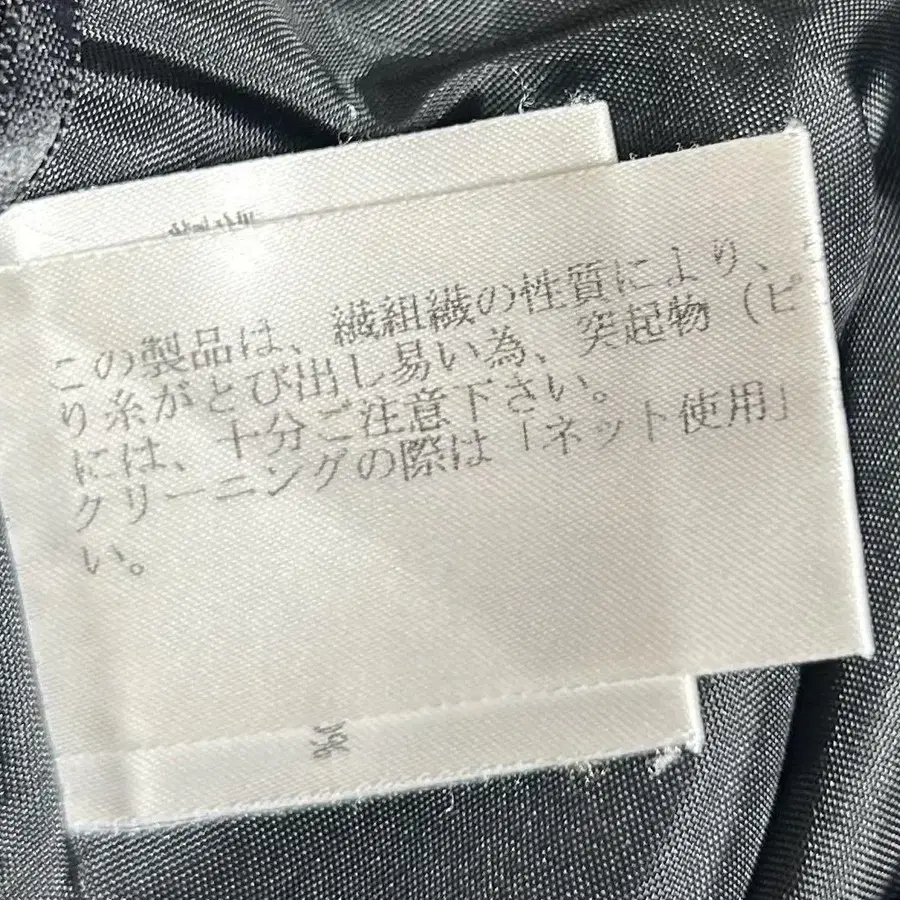 この製品は、繊組繊の性質により、
り糸がとび出し易い為、突起物（ピ
には、十分ご注意下さい。
クリーニングの際は「ネット使用」
い。